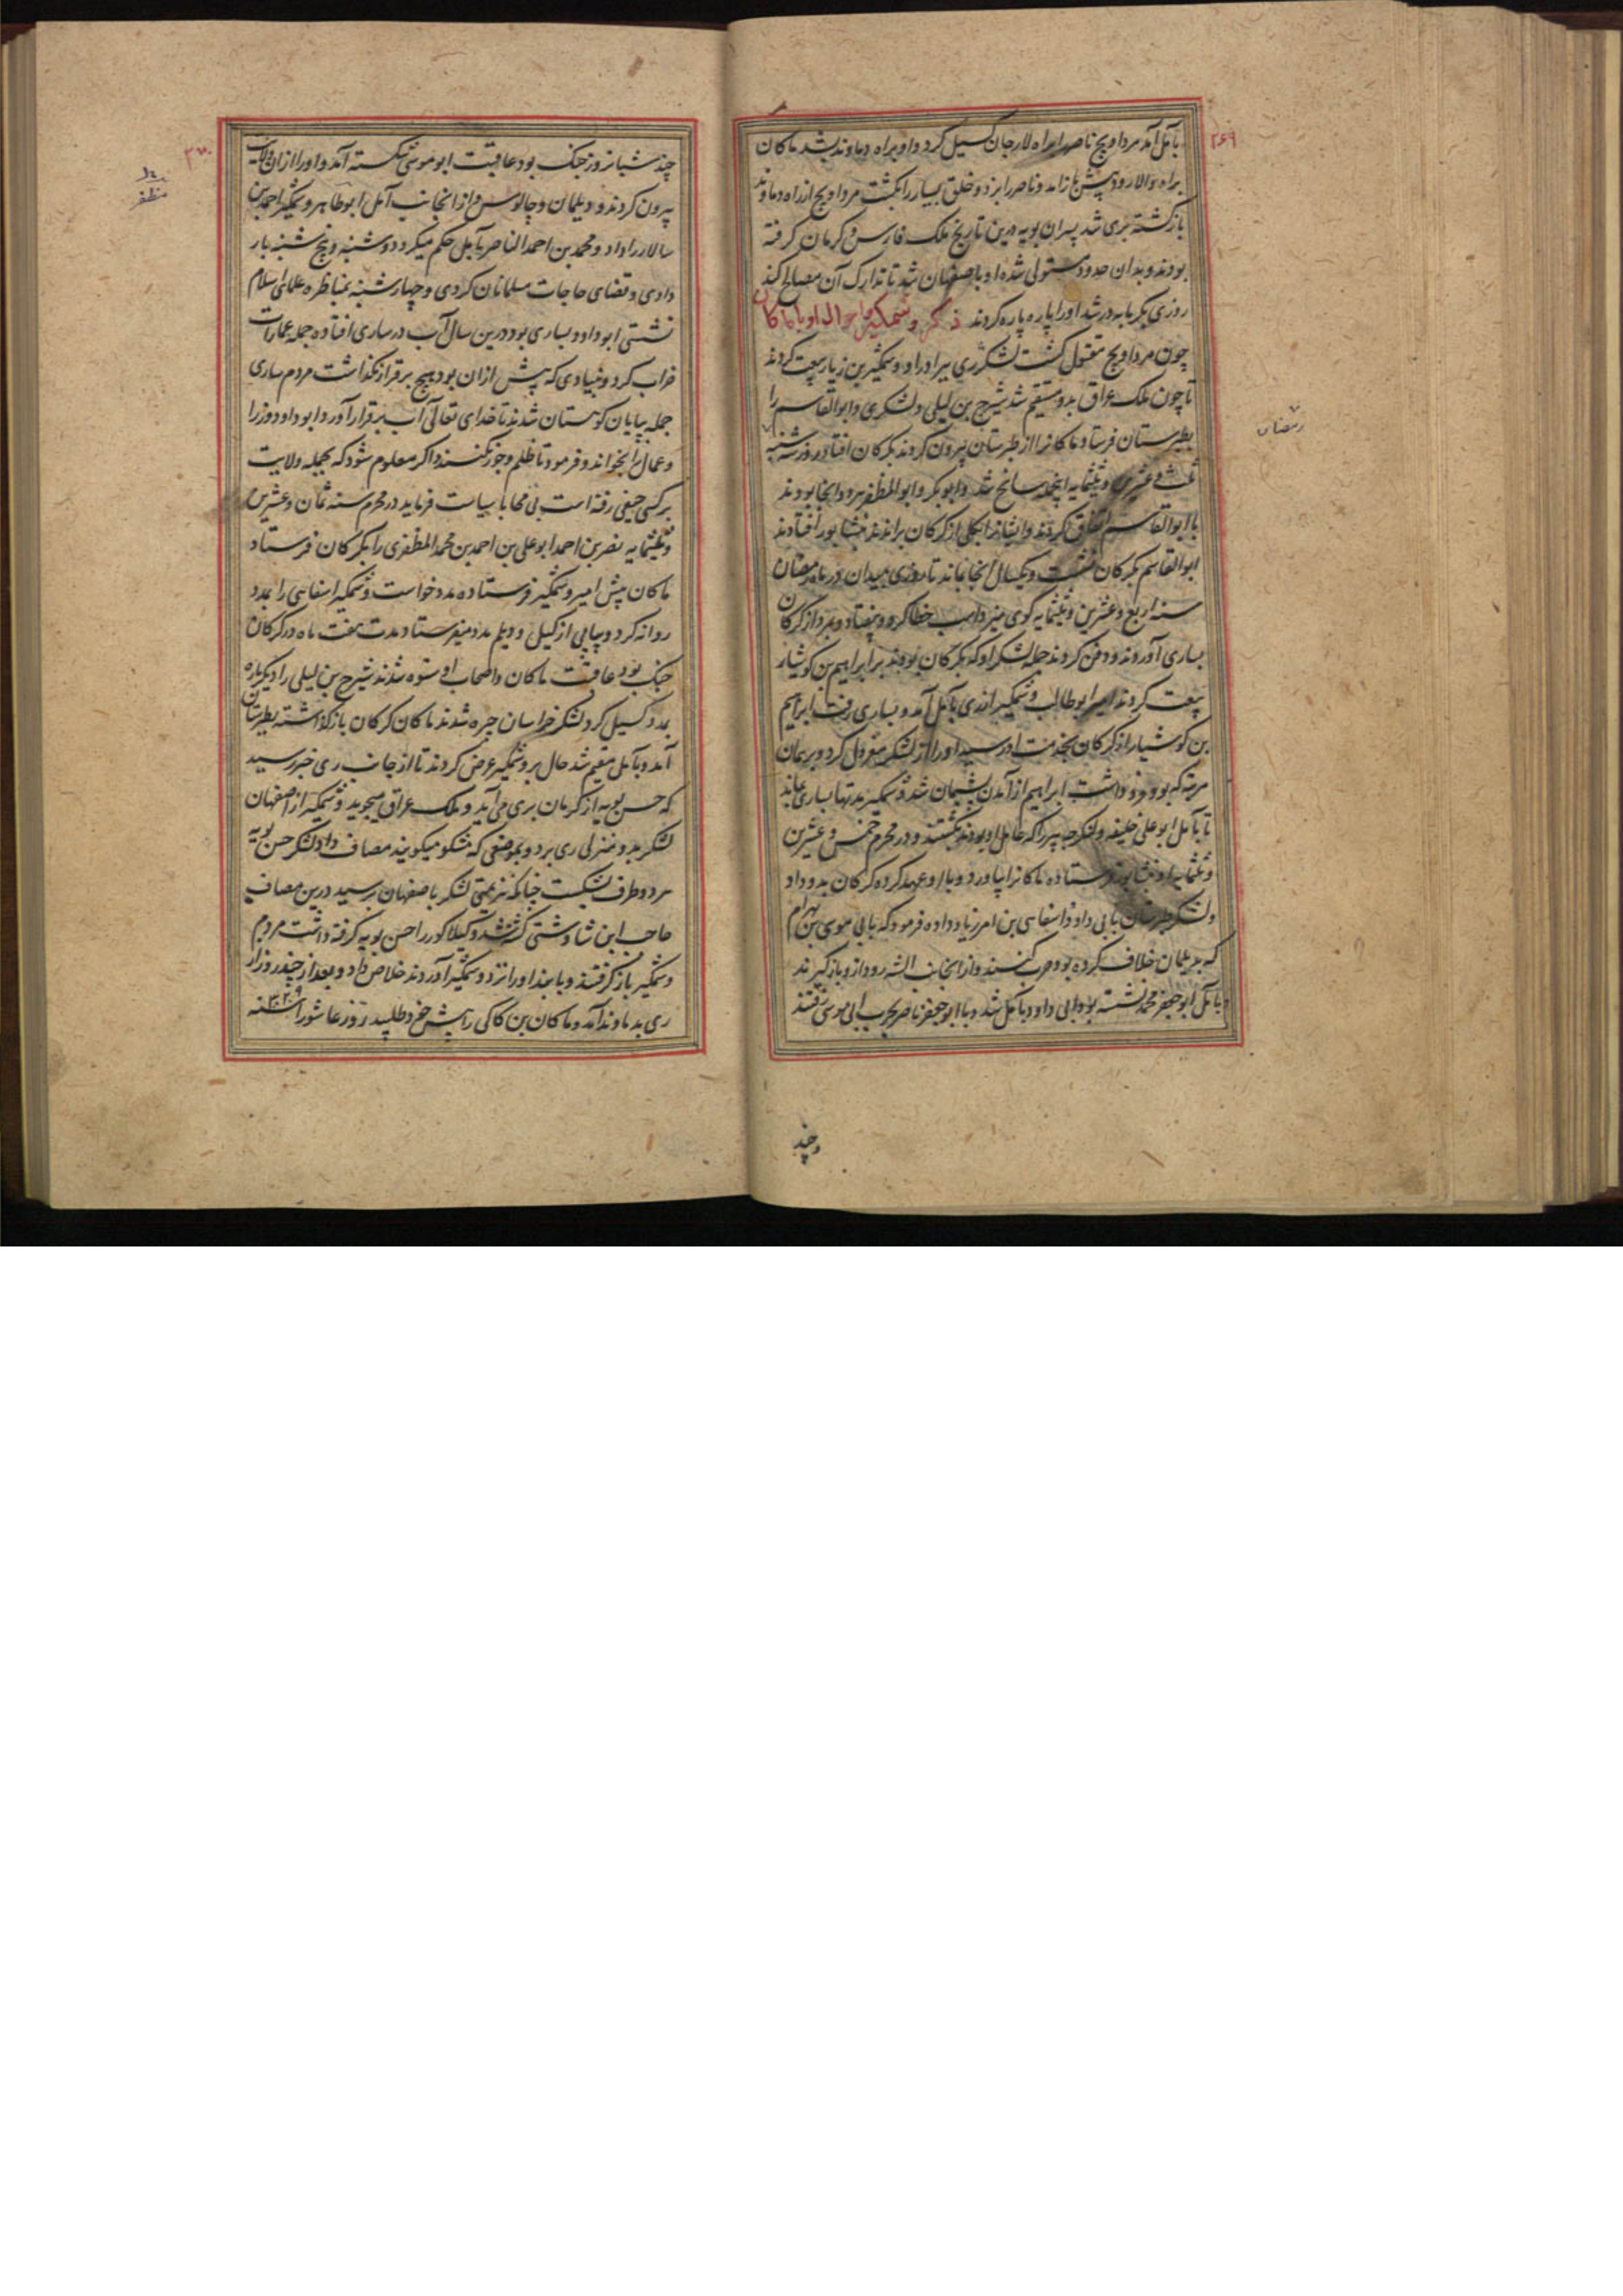 ۲۶۹
بآمل آمد مرداویج ناصر را براه لارجان کسیل کرد و او براه دماوند بشد ماکان
براه والارود پیش باز آمد و ناصر را بزد و خلق بسیار را بکشت مرداویج از راه دماوند
بازکشته بری شد پسران بویه درین تاریخ ملک فارس و کرمان کرفته
بودند و بدان حدود مستولی شده او باصفهان شد تا تدارک آن مصالح کند
روزی بکرمابه در شد او را پاره پاره کردند ذکر وشمکیر و احوال او با ماکان
چون مرداویج مقتول کشت لشکر ری ببرادر او وشمکیر بن زیار بیعت کردند
تا چون ملک عراق بدو مستقیم شد شیرج بن لیلی و لشکری و ابوالقاسم را
بطبرستان فرستاد و ماکانرا از طبرستان بیرون کردند بکرکان افتاد روز شنبه
ثلث و عشرین و ثلثمایه اینجمله سانح شد و ابوبکر و ابوالمظفر هر دو انجا بودند
با ابوالقاسم اتفاق کردند و ایشانرا بکلی از کرکان براندند بنشابور افتادند
ابوالقاسم بکرکان بنشست و یکسال انجا بماند تا روزی بمیدان در ماه رمضان
رمضان
سنه اربع و عشرین و ثلثمایه کوی میزد اسب خطا کرد و بیفتاد و بمرد از کرکان
بساری آوردند و دفن کردند جمله لشکر او که بکرکان بودند بر ابراهیم بن کوشیار
بیعت کردند امیر ابوطالب وشمکیر از ری بآمل آمد و بساری رفت ابراهیم
بن کوشیار از کرکان بخدمت او رسید او را از لشکر معزول کرد و بر همان
مرتبه که بود فرو داشت ابراهیم از آمدن پشیمان شد وشمکیر مدتها بساری بماند
تا بآمل ابوعلی خلیفه و لنکرجه پیر را که عامل او بودند بکشتند و در محرم خمس و عشرین
و ثلثمایه او بنشابور فرستاده ماکانرا بیاورد و با او عهد کرده کرکان بدو داد
و لشکر طبرستان بابی داود اسفاهی بن امرزیاد داده فرمود که بابی موسی بن بهرام
که بدیلمان خلاف کرده بود حرب کنند و از انجانب الشه رود از و باز کیرند
بآمل ابوجعفر محمد نشسته بود ابی داود بآمل شد و با ابوجعفر ناصر بحرب ابی موسی رفتند
و چند
۲۷۰
چند شبانروز جنک بود عاقبت ابوموسی شکسته آمد و او را ازان ولایت
بیرون کردند و دیلمان و چالوس و از انجانب آمل ابوطاهر وشمکیر احمد بن
مظفر
سالار را داد و محمد بن احمد الناصر بآمل حکم میکرد دوشنبه و پنج شنبه بار
دادی و قضای حاجات مسلمانان کردی و چهارشنبه بمناظره علمای اسلام
نشستی ابوداود بساری بود درین سال آب در ساری افتاده جمله عمارات
خراب کرد و بنیادی که پیش ازان بود هیچ برقرار نکذاشت مردم ساری
جمله بپایان کوهستان شدند تا خدای تعالی آب برقرار آورد ابوداود وزرا
و عمال را بخواند و فرمود تا ظلم و جور نکنند و اکر معلوم شود که بجمله ولایت
بر کسی حیفی رفته است بی محابا سیاست فرماید در محرم سنه ثمان و عشرین
و ثلثمایه نصر بن احمد ابوعلی بن احمد بن محمد المظفری را بکرکان فرستاد
ماکان پیش امیر وشمکیر فرستاده مدد خواست وشمکیر اسفاهی را بمدد
روانه کرد و پیاپی از کیل و دیلم مدد میفرستاد مدت هفت ماه در کرکان
جنک بود عاقبت ماکان و اصحاب او ستوه شدند شیرج بن لیلی را دیکرباره
بمدد کسیل کرد لشکر خراسان چیره شدند ماکان کرکان باز کذاشته بطبرستان
آمد و بآمل مقیم شد حال بر وشمکیر عرض کردند تا از جانب ری خبر رسید
که حسن بویه از کرمان بری می آید و ملک عراق میجوید وشمکیر از اصفهان
لشکر بدو منزلی ری برد و بموضعی که مشکو میکویند مصاف داد لشکر حسن بویه
هر دو طرف بشکست چنانکه هزیمتی لشکر باصفهان رسید درین مصاف
حاجب ابن شادشتی کشته شد و کیلاکور را حسن بویه کرفته داشت مردم
وشمکیر باز کرفتند و با بند او را نزد وشمکیر آوردند خلاص داد و بعد از چند روز از
ری بدماوند آمد و ماکان بن کاکی را پیش خود طلبید روز عاشورا سنه